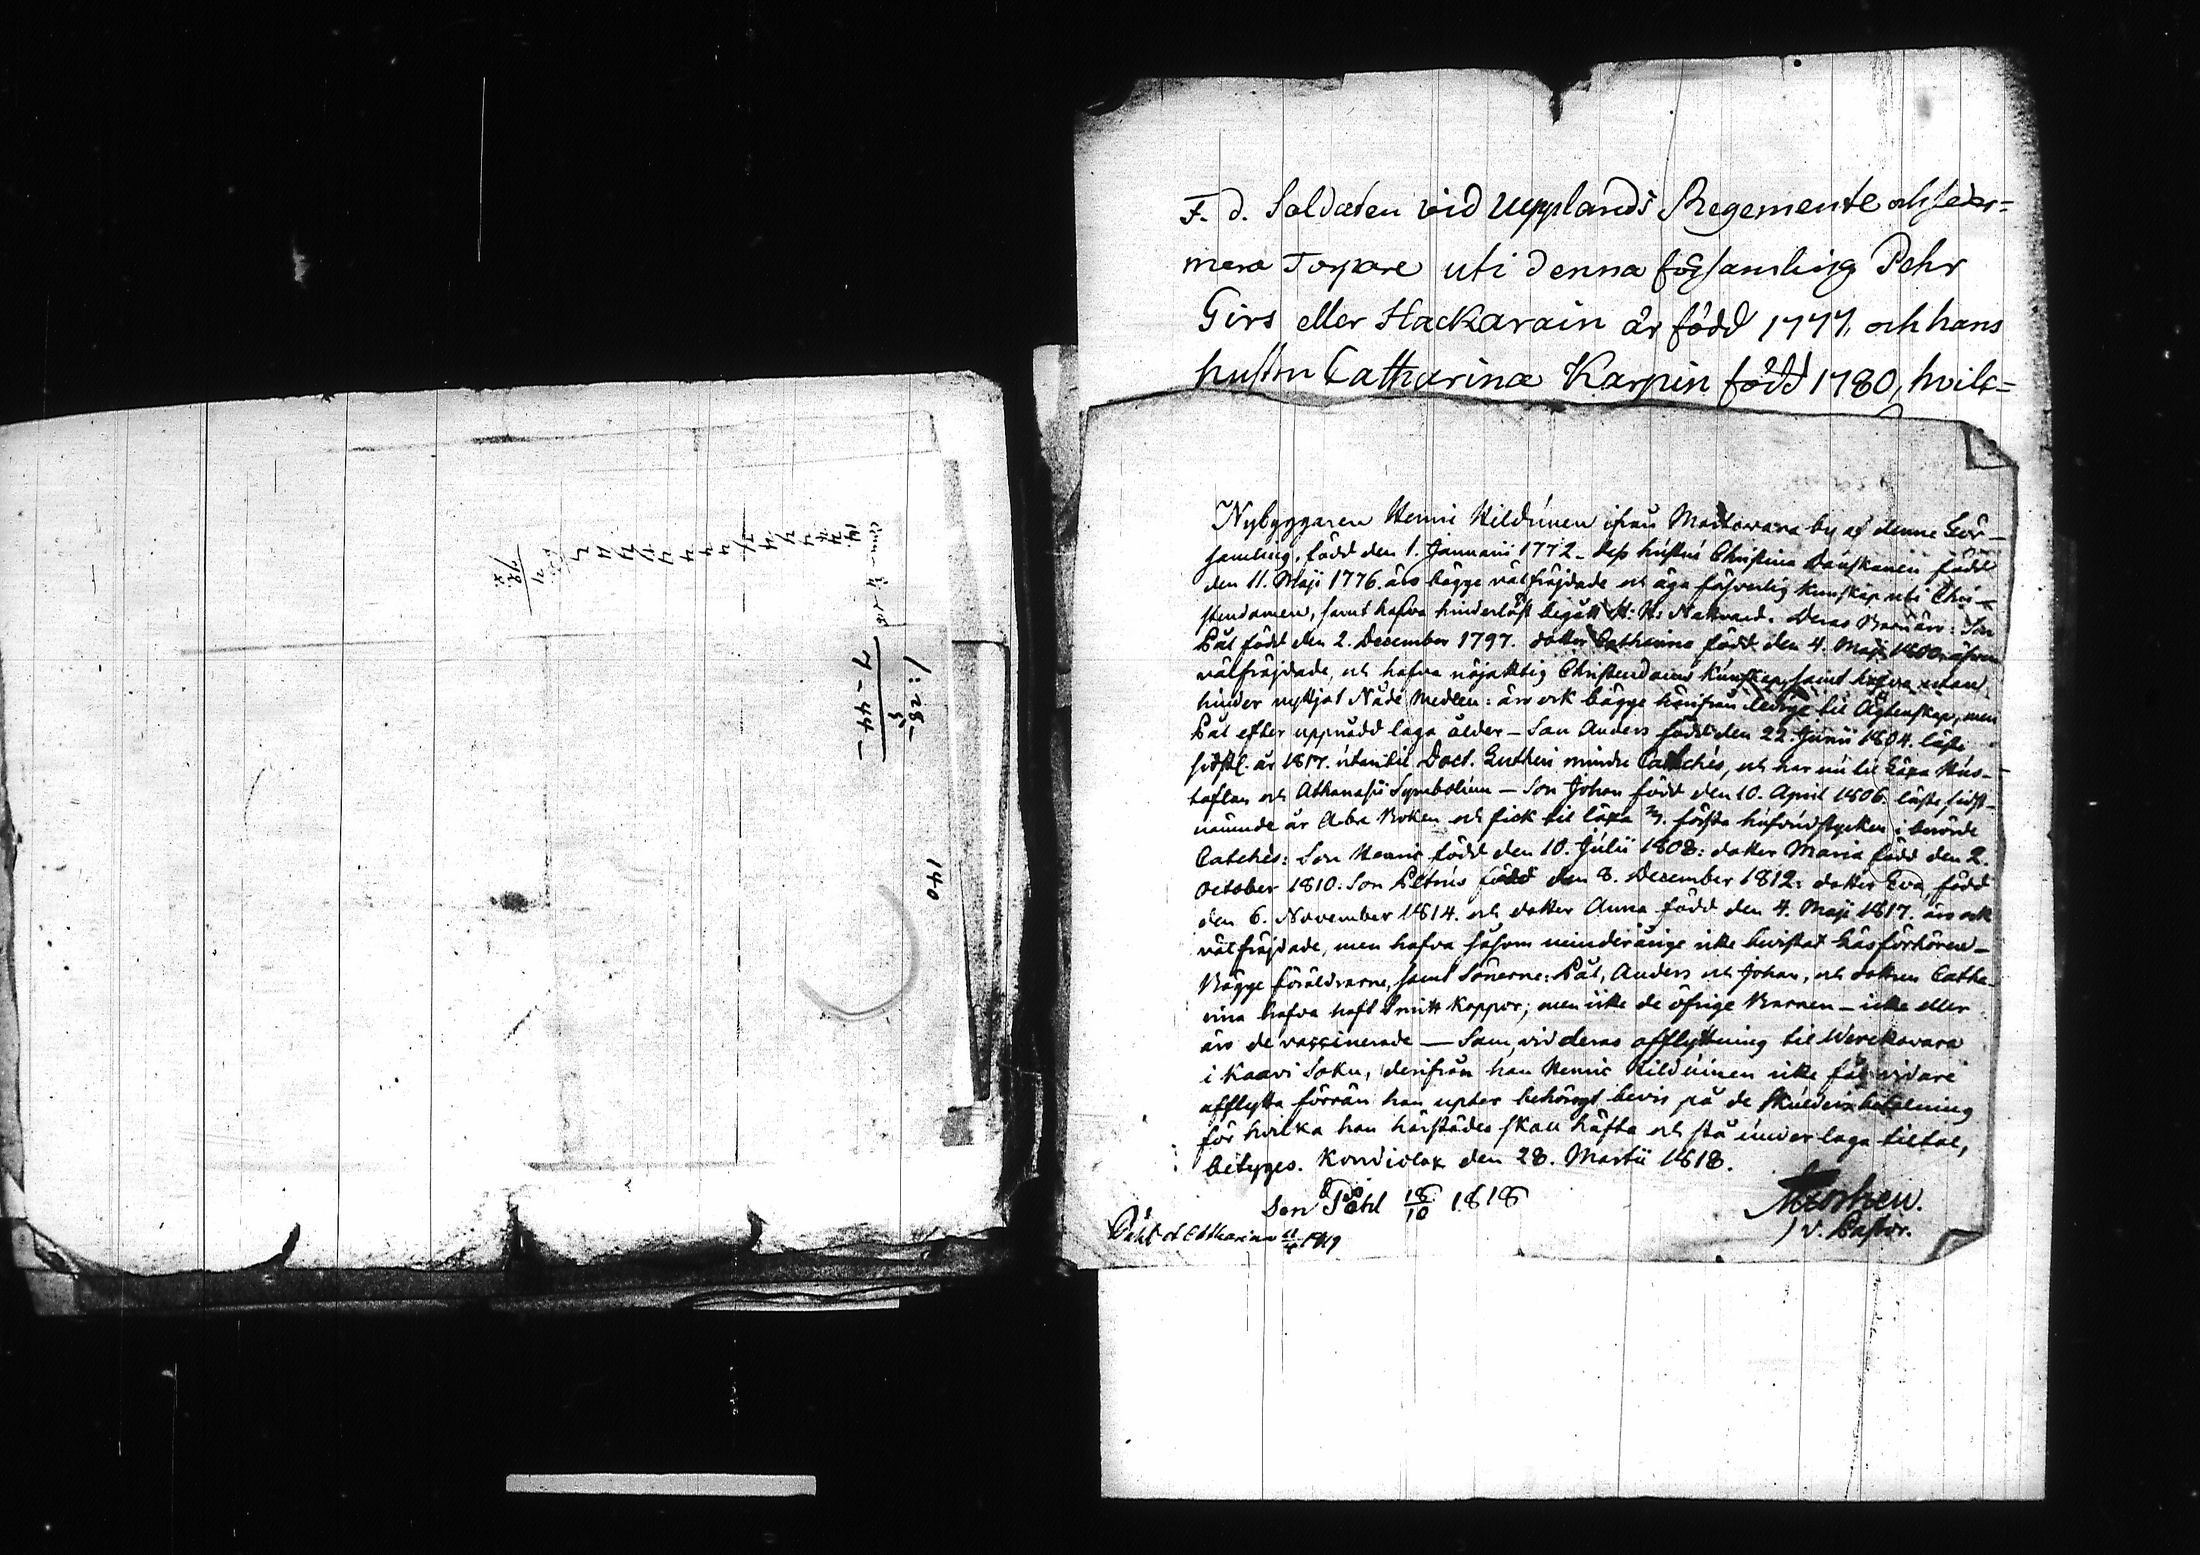 F. d. Soldaten vid Upplands Regemente och seder=
mera Torpare uti denna församling Pehr
Girs eller Hackarain är född 1777, och hans
hustru Catharina Karpin född 1780, hvilk=
Nybyggaren Henric Hildunen ifrån Martowara by af denne För-
samling, född den 1. Januarii 1772 - dess hustru Christina Danskanen född
den 11. Maji 1776. äro bägge välfräjdade och äga försvarlig kunskap uti Chri-
stendomen, samt hafva hinderlöst begått H: H: Nattvard. Deras Barn äro: Son
Pål född den 2. December 1797. dotter Catharina född den 4. Maji 1800. äfven
välfräjdade, och hafva nöjaktig Christendoms kunskap, samt hafva utan
hinder nyttjat Nåde Medlen: äro ock bägge härifrån ledige til Ägtenskap, men
Pål efter uppnådd laga ålder - Son Anders född den 22. Junii 1804. läste
sidstl. år 1817. utantil Doct. Lutheri mindre Cateches, och har nu til läxa Hus-
taflan och Athanasii Symbolum - Son Johan född den 10. April 1806. läste sidst-
nämnde år Abc Boken och fick til läxa 3. första hufvudstycken i berörde
Cateches: Son Henric född den 10. Julii 1808: dotter Maria född den 2.
October 1810: Son Petrus född den 8. December 1812: dotter Eva, född
den 6. November 1814. och dotter Anna född den 4. Maji 1817. äro ock
välfräjdade, men hafva såsom minderårige icke bevistat Läsförhören -
Bägge föräldrarne, samt Sönerne: Pål, Anders och Johan, och dottren Catha-
rina hafva haft Smitt koppor; men icke de öfrige Barnen - icke eller
äro de vaccinerade - Som, vid deras afflyttning til Werckavara
i Kaavi Sokn, derifrån han Henric Hildunen icke får vidare
afflytta förrän han upter behörigt bevis på de skulders betalning
för hvilka han härstädes skall häfta och stå under laga tiltal,
betyges. Kondiolax den 28. Martii 1818.
v. Pastor.
Son Påhl 18/10 1818
Påhl och Catharina 11/4 1819
1: 28 -
7 - 44 -
140